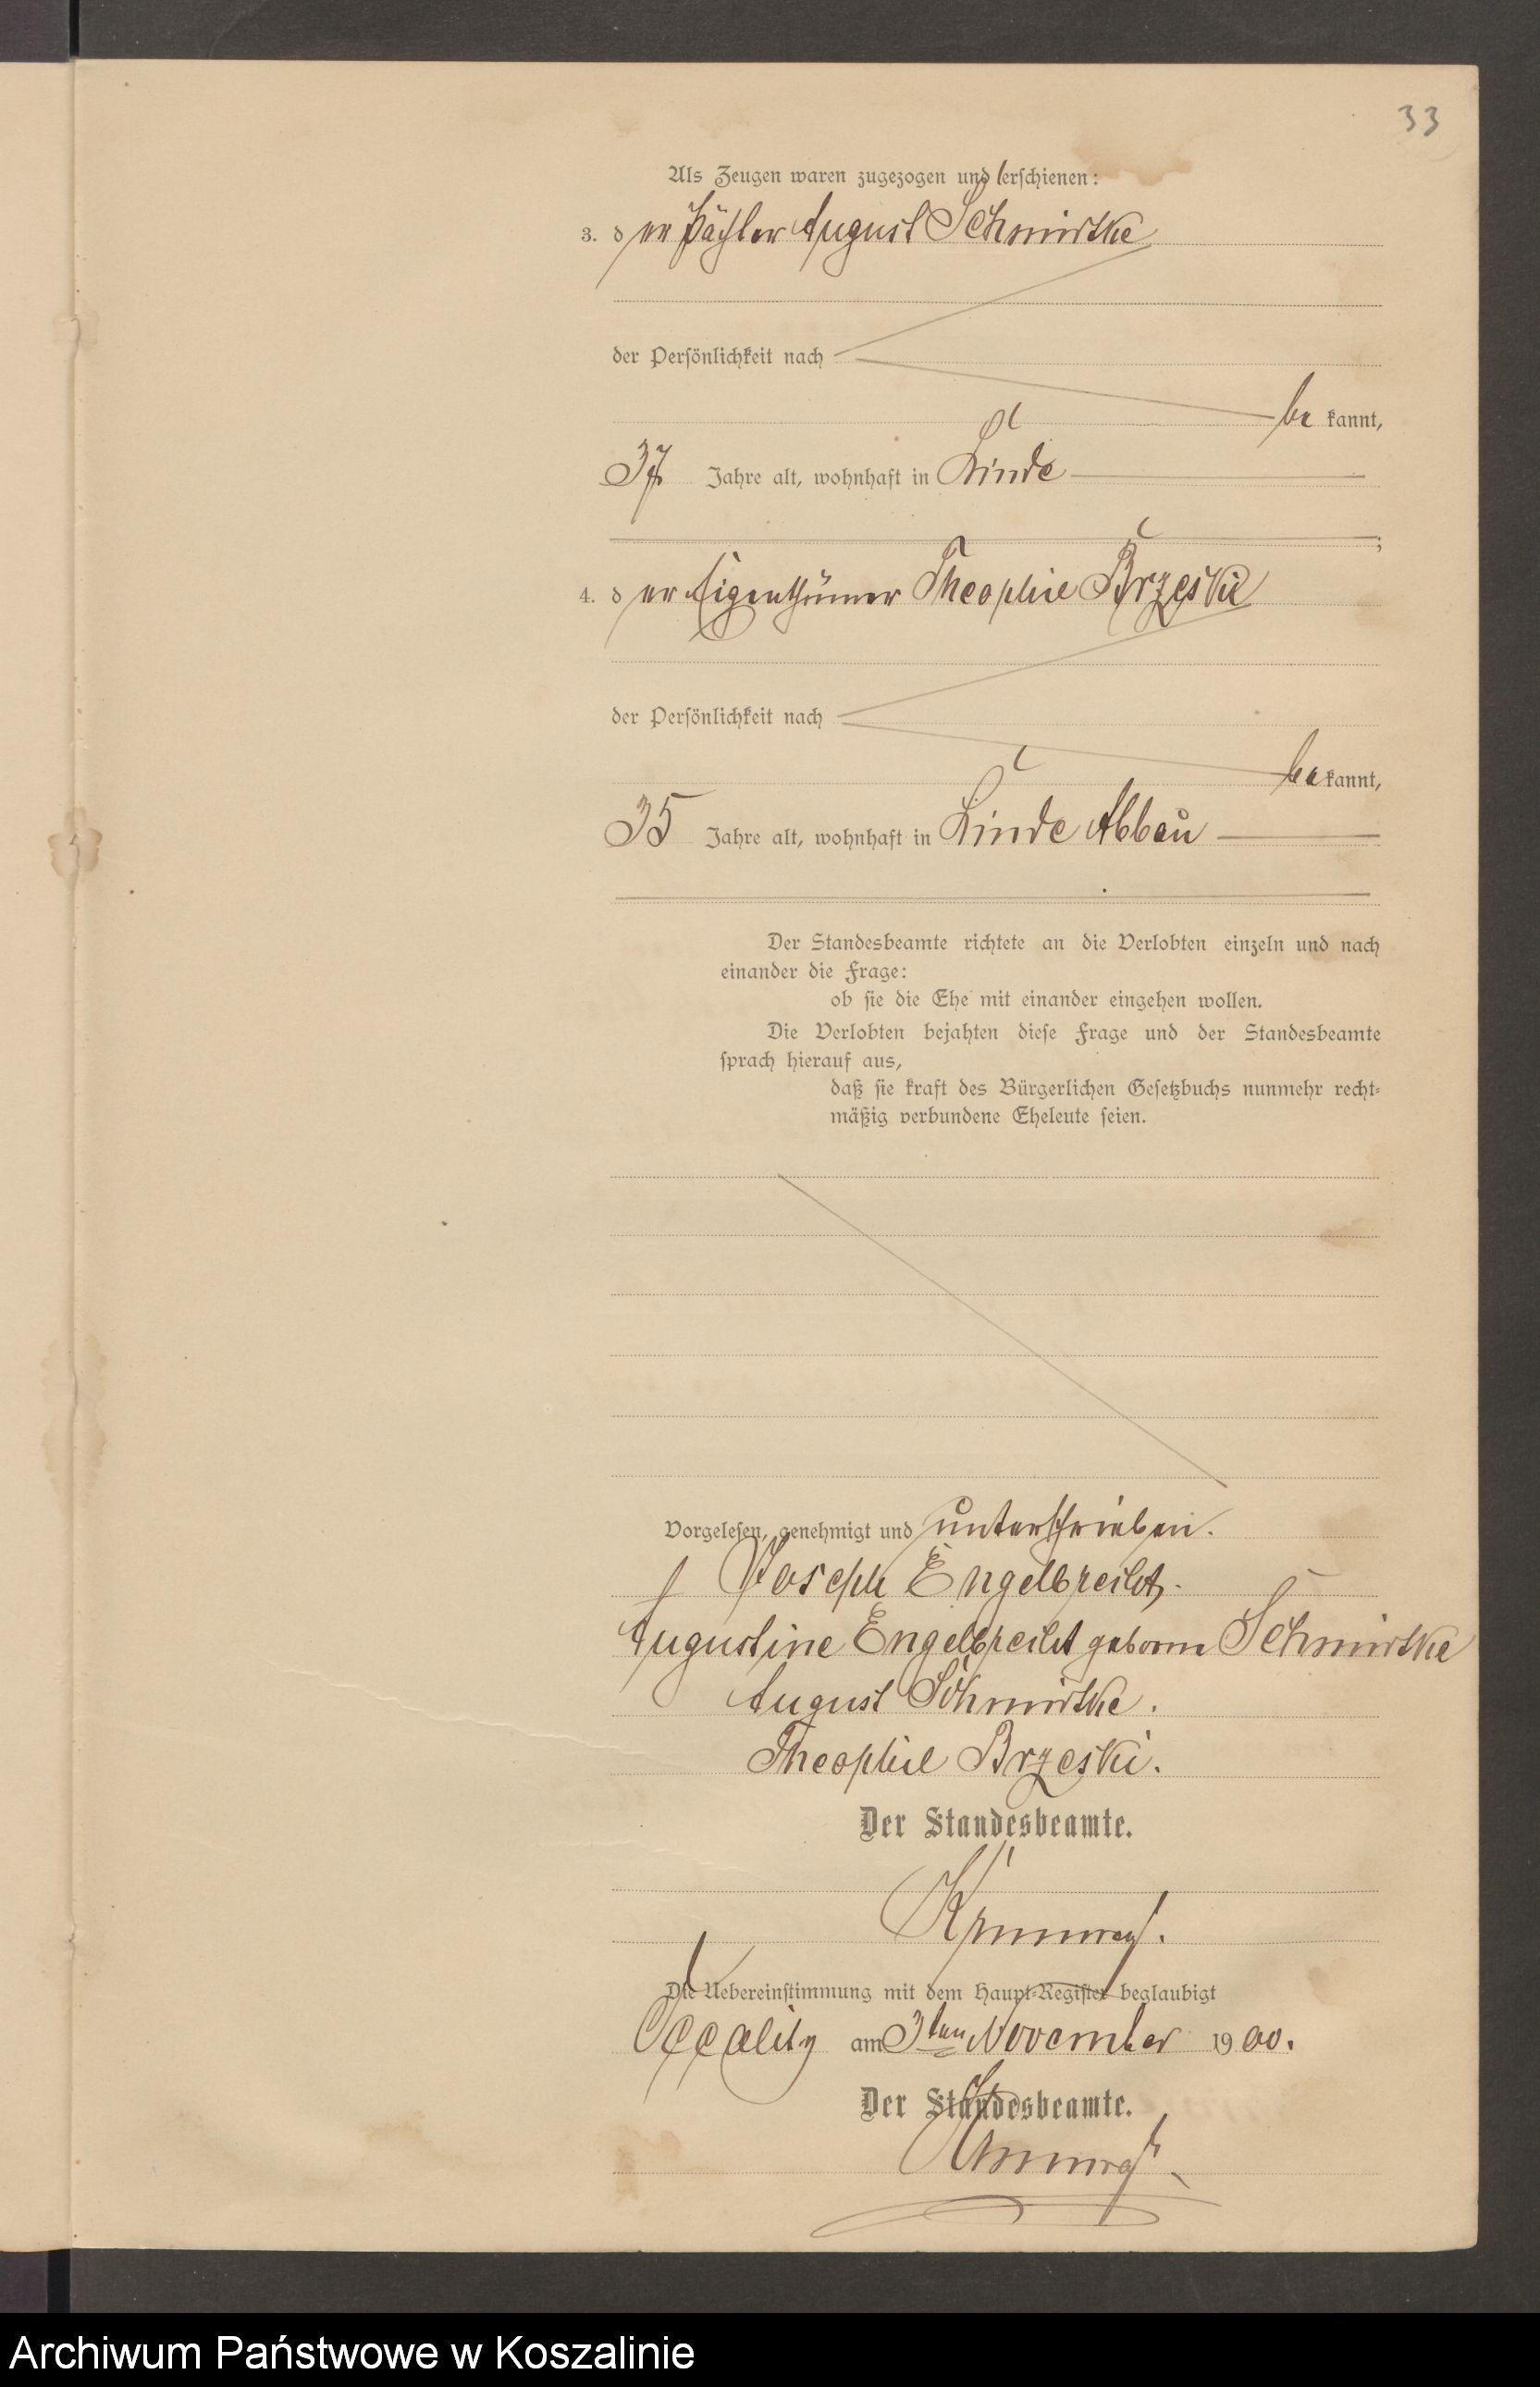 33
Als Zeugen waren zugezogen und erschienen:
3. der Pächter August Schmidtke
der Persönlichkeit nach
bekannt,
37 Jahre alt, wohnhaft in Linde
;
4. der Eigenthümer Theophil Brzeski
der Persönlichkeit nach
bekannt,
35 Jahre alt, wohnhaft in Linde Abbau
Der Standesbeamte richtete an die Verlobten einzeln und nach
einander die Frage:
ob sie die Ehe mit einander eingehen wollen.
Die Verlobten bejahten diese Frage und der Standesbeamte
sprach hierauf aus,
daß sie kraft des Bürgerlichen Gesetzbuchs nunmehr recht-
mäßig verbundene Eheleute seien.
Vorgelesen, genehmigt und unterschrieben.
Joseph Engelbrecht.
Augustine Engelbrecht geborne Schmidtke
August Schmidtke.
Theophil Brzeski.
Der Standesbeamte.
Die Uebereinstimmung mit dem Haupt-Register beglaubigt
am 3ten November 1900.
Der Standesbeamte.
Archiwum Państwowe w Koszalinie